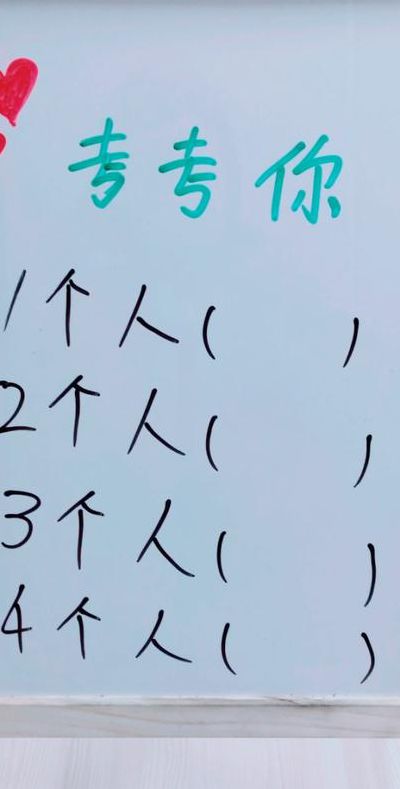 考考你
1个人(    )
2个人(    )
3个人(    )
4个人(    )